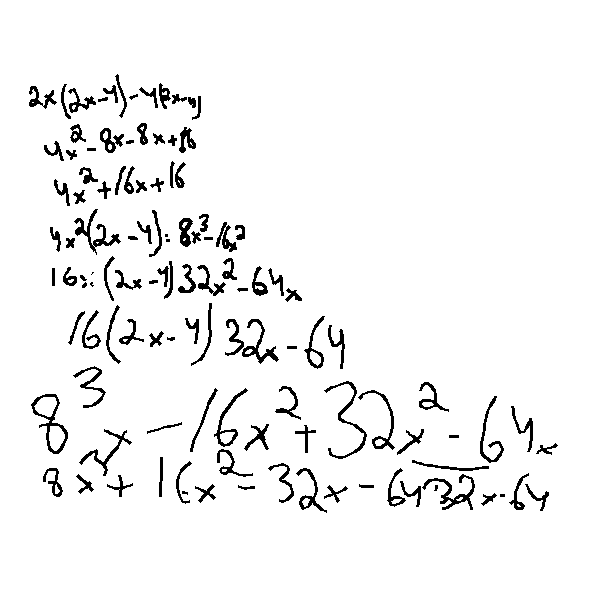 2x(2x-4)-4(2x-4)
4x²-8x-8x+16
4x²+16x+16
4x²(2x-4)=8x³-16x²
16x(2x-4)32x²-64x
16(2x-4)32x-64
8³x-16x²+32x²-64x
8x³+16x²=32x-64 32x-64